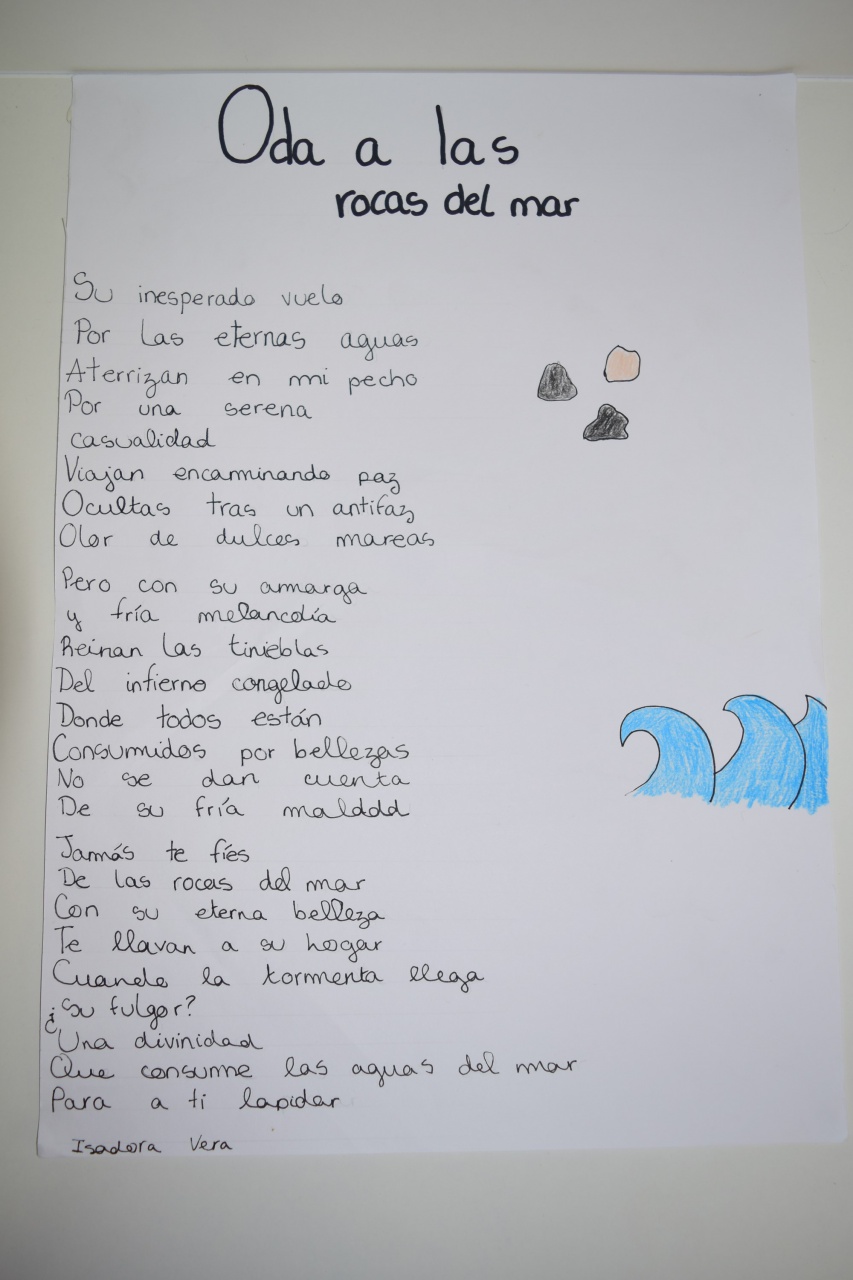 Oda a las
rocas del mar
Su inesperado vuelo
Por las eternas aguas
Aterrizan en mi pecho
Por una serena
casualidad
Viajan encaminando paz
Ocultas tras un antifaz
Olor de dulces mareas
Pero con su amarga
y fría melancolía
Reinan las tinieblas
Del infierno congelado
Donde todos están
Consumidos por bellezas
No se dan cuenta
De su fría maldad
Jamás te fíes
De las rocas del mar
Con su eterna belleza
Te llavan a su hogar
Cuando la tormenta llega
¿Su fulgor?
Una divinidad
Que consume las aguas del mar
Para a ti lapidar
Isadora Vera